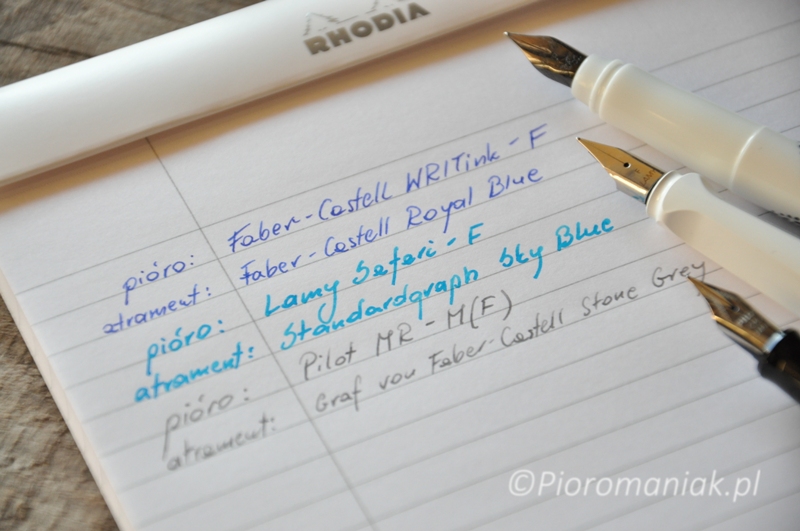 RHODIA
pióro: Faber-Castell WRITink - F
atrament: Faber-Castell Royal Blue
pióro: Lamy Safari - F
atrament: Standardgraph Sky Blue
pióro: Pilot MR - M(F)
atrament: Graf von Faber-Castell Stone Grey
©Pioromaniak.pl